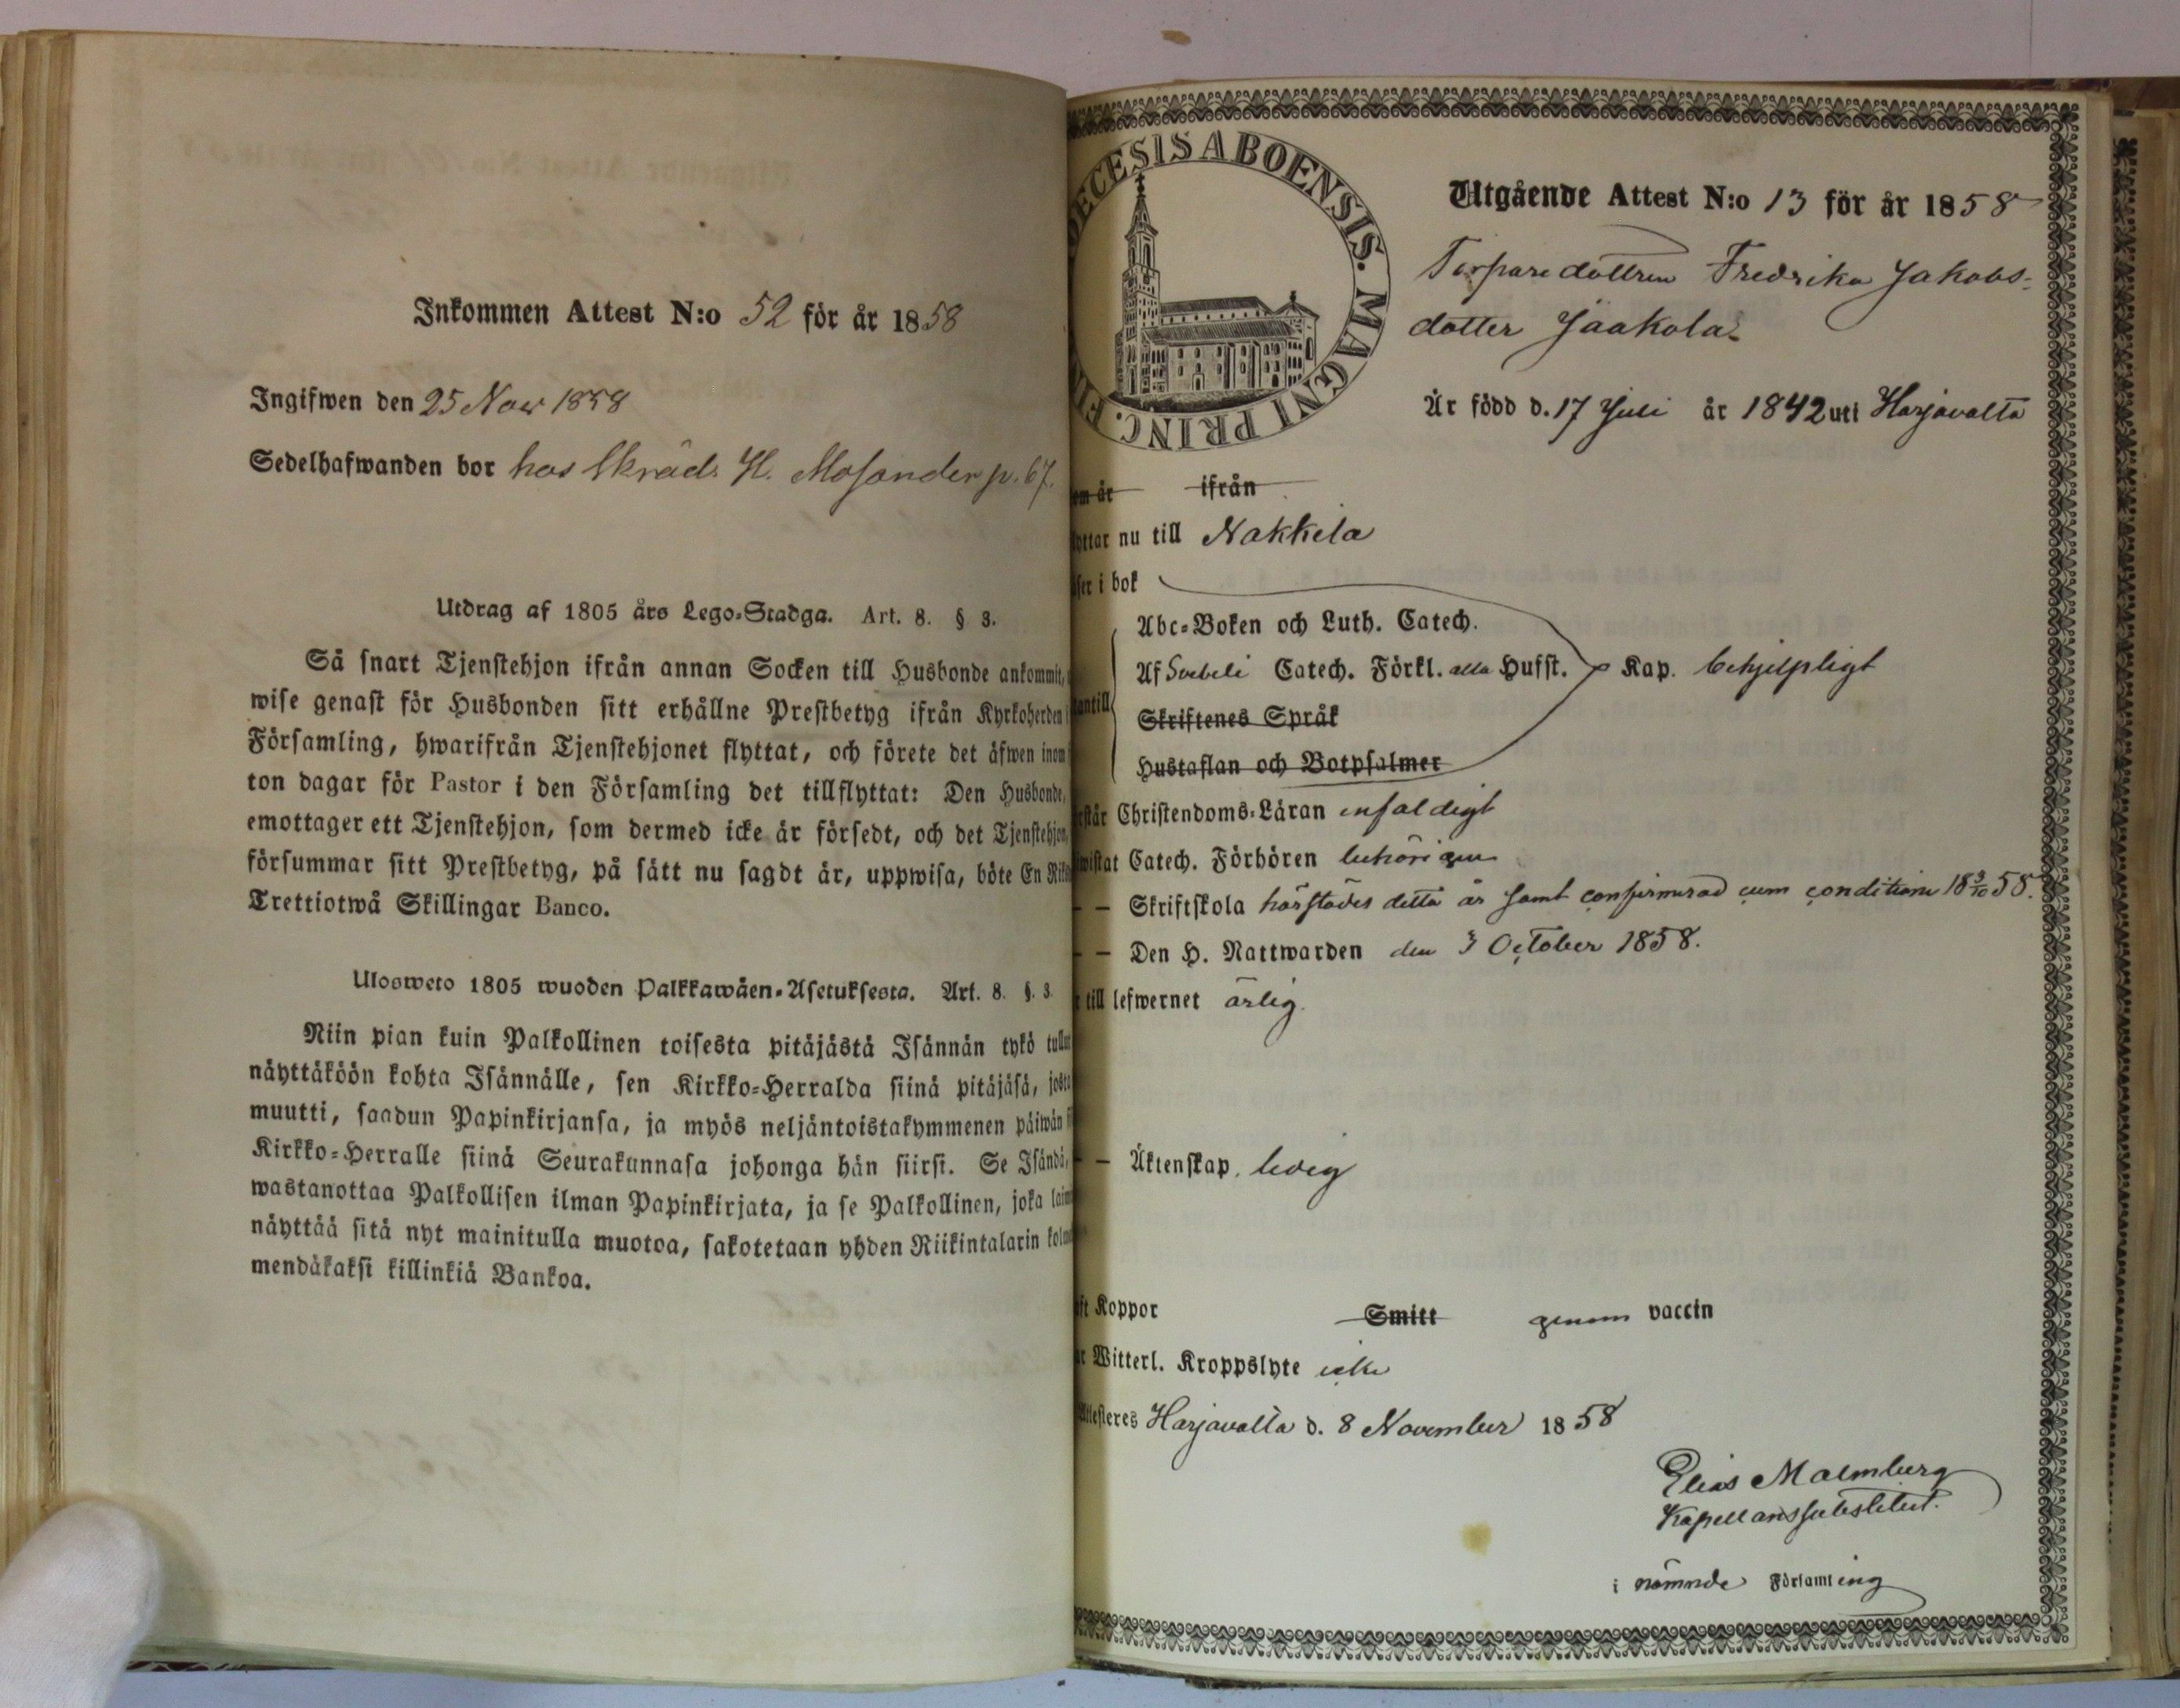 Inkommen Attest N:o 52 för år 1858
Ingifwen den 25 Nov 1858
Sedelhafwanden bor hos Skräd. H. Mosander p. 67.
Utdrag af 1805 års Lego-Stadga. Art. 8. § 3.
Så snart Tjenstehjon ifrån annan Socken till Husbonde ankommit,
wise genast för Husbonden sitt erhållne Prestbetyg ifrån Kyrkoherden i
Församling, hwarifrån Tjenstehjonet flyttat, och förete det äfwen inom
ton dagar för Pastor i den Församling det tillflyttat: Den Husbonde,
emottager ett Tjenstehjon, som dermed icke är försedt, och det Tjenstehjon,
försummar sitt Prestbetyg, på sätt nu sagdt är, uppwisa, böte En Riks
Trettiotwå Skillingar Banco.
Ulosweto 1805 wuoden Palkkawäen-Asetuksesta. Art. 8. §. 3.
Niin pian kuin Palkollinen toisesta pitäjästä Isännän tykö tullut
näyttäköön kohta Isännälle, sen Kirkko-Herralda siinä pitäjäsä, josta
muutti, saadun Papinkirjansa, ja myös neljäntoistakymmenen päiwän
Kirkko-Herralle siinä Seurakunnasa johonga hän siirsi. Se Isändä,
wastanottaa Palkollisen ilman Papinkirjata, ja se Palkollinen, joka laim
näyttää sitä nyt mainitulla muotoa, sakotetaan yhden Riikintalarin kolm
mendäkaksi killinkiä Bankoa.
ECESIS ABOENSIS. MAGNI PRINC. FIN
Utgående Attest N:o 13 för år 1858
Torparedottren Fredrika Jakobs-
dotter Jaakola
Är född d. 17 Juli år 1842 uti Harjavalta
om är ifrån
yttar nu till Nakkila
äser i bok
Abc-Boken och Luth. Catech.
Af Svebeli Catech. Förkl. alla Hufst. Kap. behjelpligt
antill
Skriftenes Språk
Hustaflan och Botpsalmer
rstår Christendoms-Läran enfaldigt
wistat Catech. Förhören behörigen
— — Skriftskola härstädes detta år samt confirmerad cum conditione 18 3/10 58.
— — Den H. Nattwarden den 3 October 1858.
r till lefwernet ärlig.
— — Äktenskap. ledig
ft Koppor Smitt genom vaccin
ar Witterl. Kroppslyte icke
Attesteres Harjavalta d. 8 November 1858
Elias Malmberg
Kapellanssubstitut.
i nämnde Församling